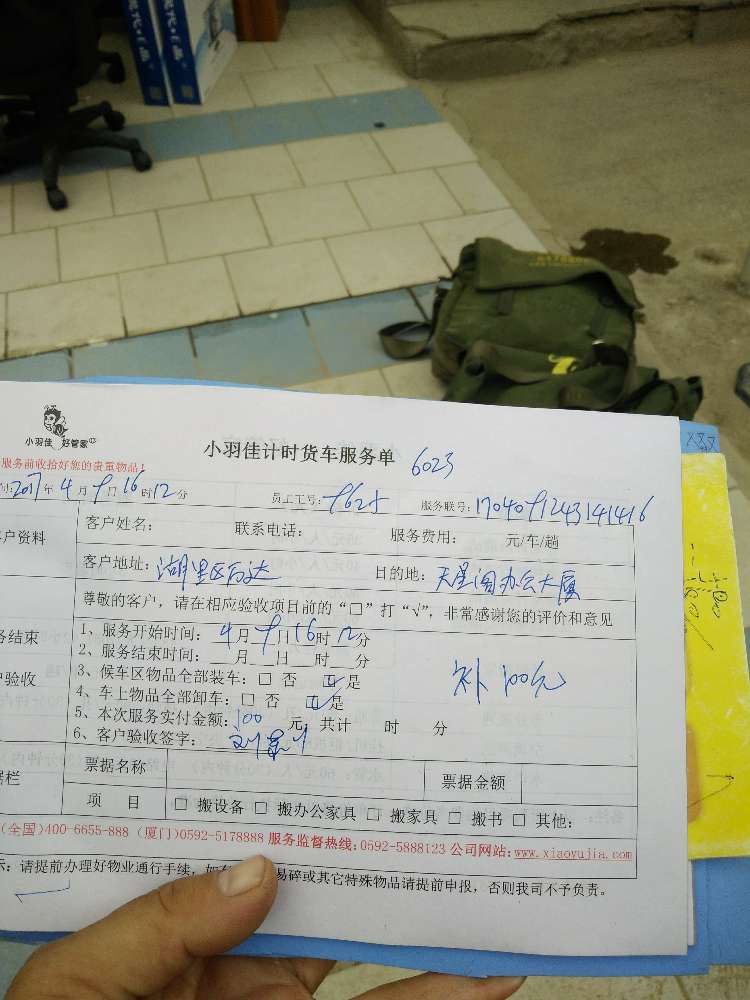 小羽佳 好管家
小羽佳计时货车服务单 6023
服务前收拾好您的贵重物品!
2017年4月9日16时12分 员工工号: 9625 服务联号: 1704091243141416
客户姓名: 联系电话: 服务费用: 元/车/趟
户资料
客户地址: 湖里区万达 目的地: 天星阁办公大厦
尊敬的客户，请在相应验收项目前的“□”打“√”，非常感谢您的评价和意见
1、服务开始时间: 4月9日16时12分
务结束
2、服务结束时间: __月__日__时__分
3、候车区物品全部装车: □ 否 ☑ 是
补100元
户验收
4、车上物品全部卸车: □ 否 ☑ 是
5、本次服务实付金额: 100 元, 共计 时 分
6、客户验收签字:
票据名称 票据金额
据栏
项 目 □ 搬设备 □ 搬办公家具 □ 搬家具 □ 搬书 □ 其他:
(全国)400-6655-888 (厦门)0592-5178888 服务监督热线:0592-5888123 公司网站:www.xiaoyujia.com
示: 请提前办理好物业通行手续, 如 易碎或其它特殊物品请提前申报, 否则我司不予负责。